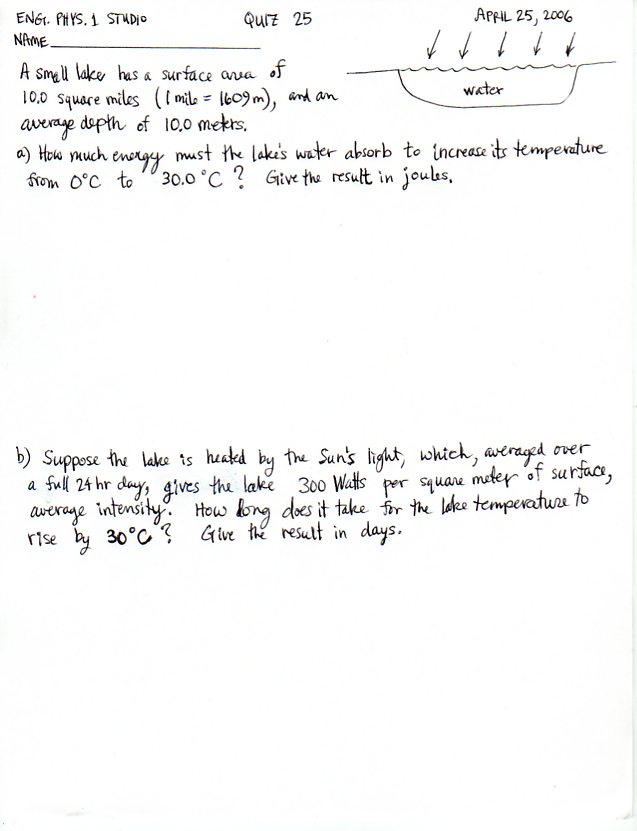 ENGR. PHYS. 1 STUDIO QUIZ 25 APRIL 25, 2006
NAME
A small lake has a surface area of
10.0 square miles (1 mile = 1609 m), and an
average depth of 10.0 meters.
water
a) How much energy must the lake's water absorb to increase its temperature
from 0°C to 30.0 °C ? Give the result in joules.
b) Suppose the lake is heated by the Sun's light, which, averaged over
a full 24 hr day, gives the lake 300 Watts per square meter of surface,
average intensity. How long does it take for the lake temperature to
rise by 30°C ? Give the result in days.